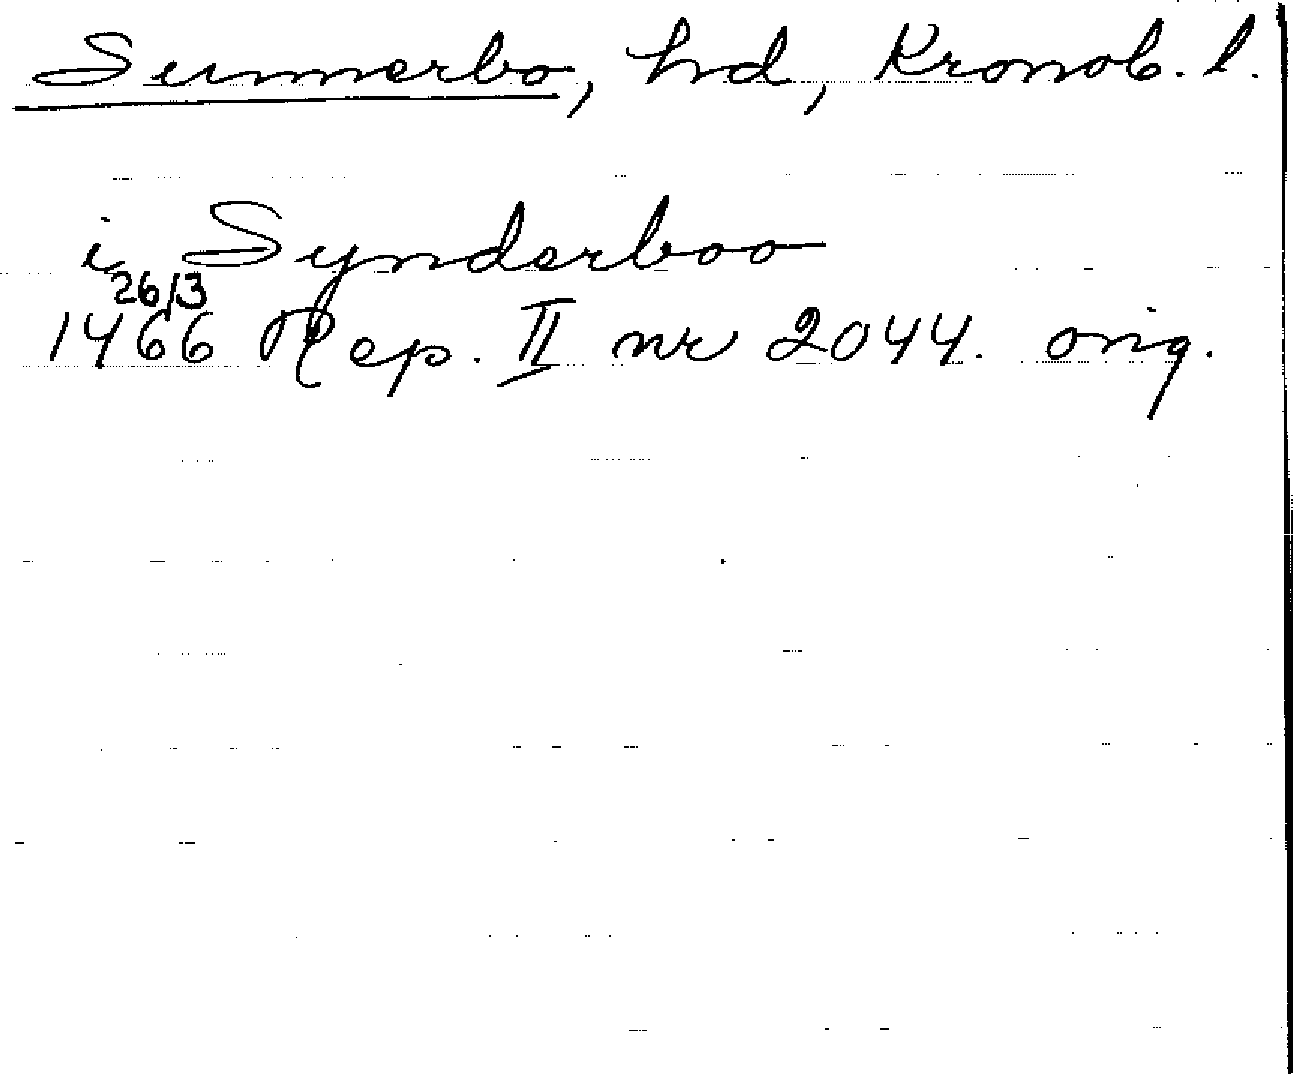 Sunnerbo, hd, Kronob. l.
i Synderboo
26/3
1466 Rep. II nr 2044. orig.